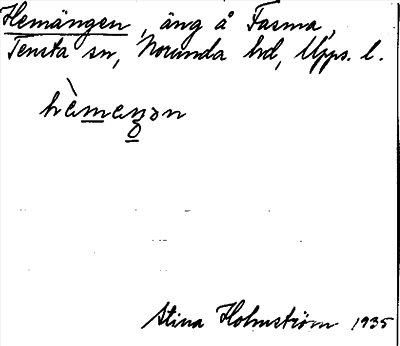 Hemängen, äng å Fasma,
Tensta sn, Norunda hd, Upps. l.
Stina Holmström 1935